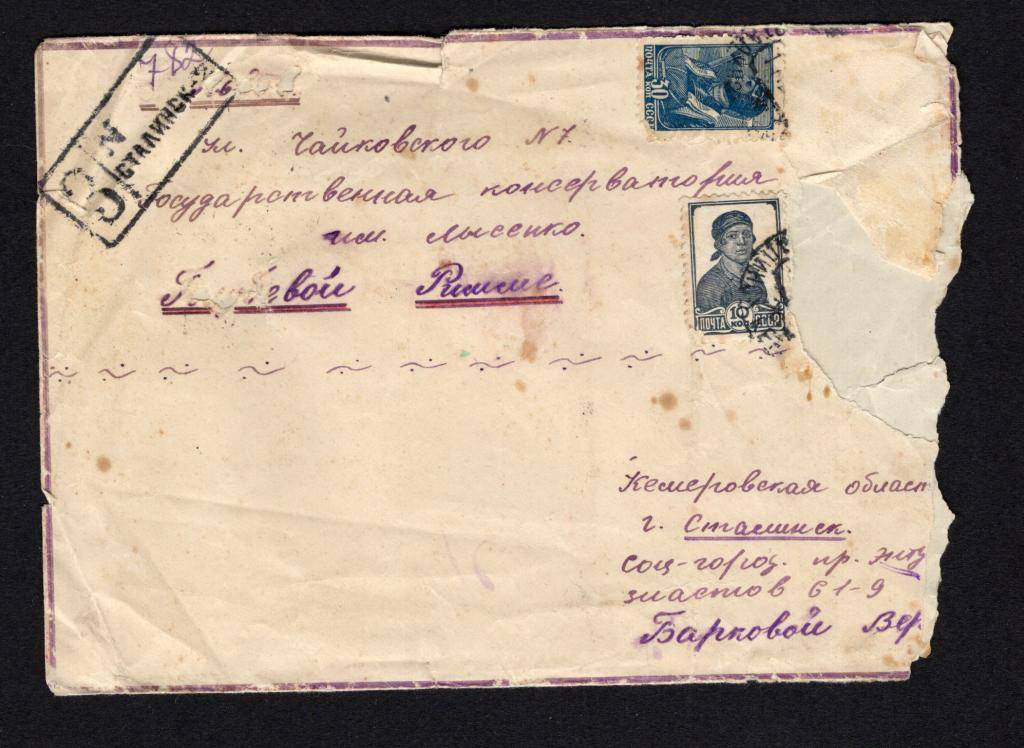 782
З N СТАЛИНСК
ул. Чайковского N 7.
Государственная консерватория
им. Лысенко.
Римме.
ПОЧТА 30 КОП. СССР
ПОЧТА 10 КОП. СССР
Кемеровская област
г. Сталинск.
соц-город. пр. Энту
зиастов 61-9
Барковой Вер.